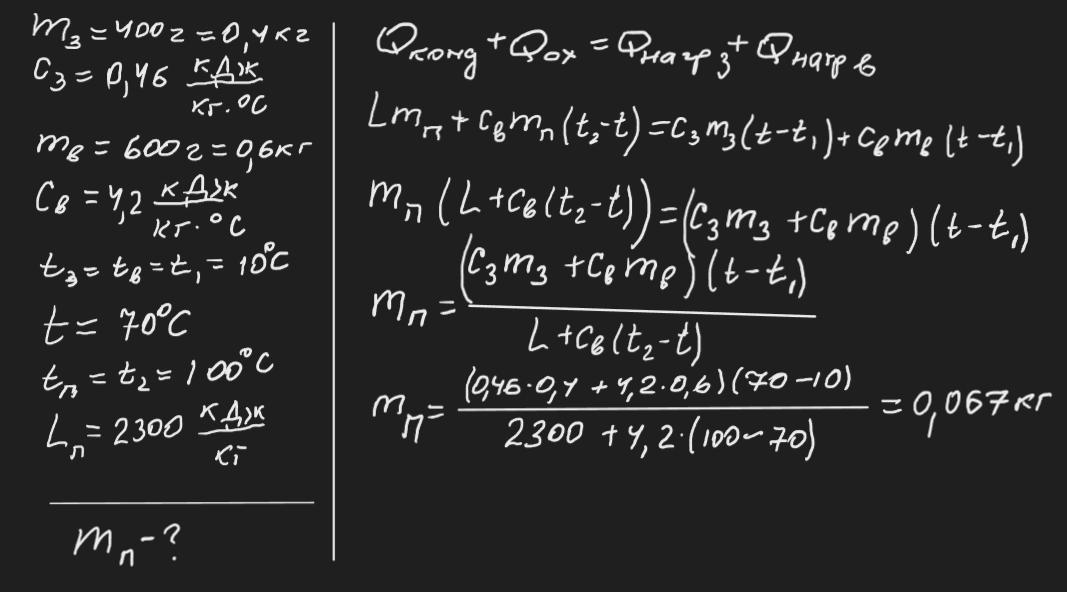 m₃ = 400 г = 0,4 кг
c₃ = 0,46 кДж/кг·°C
mв = 600 г = 0,6 кг
cв = 4,2 кДж/кг·°C
t₃ = tв = t₁ = 10°C
t = 70°C
tп = t₂ = 100°C
Lп = 2300 кДж/кг
mп - ?
Qконд + Qох = Qнагр з + Qнагр в
Lmп + cвmп(t₂-t) = c₃m₃(t-t₁) + cвmв(t-t₁)
mп(L + cв(t₂-t)) = (c₃m₃ + cвmв)(t-t₁)
mп = (c₃m₃ + cвmв)(t-t₁) / L + cв(t₂-t)
mп = (0,46·0,4 + 4,2·0,6)(70-10) / 2300 + 4,2·(100-70) = 0,067 кг